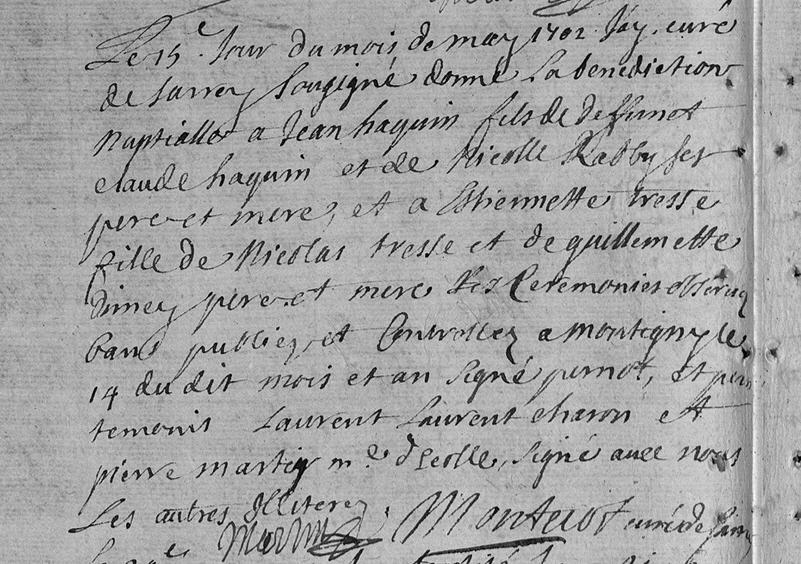 Le 15e Jour du mois de may 1702 J'ay, curé
de Sarrey Sousigné donné La benediction
Nuptialle a Jean haquin fils de deffunct
claude haquin et de Nicolle Rabby ses
pere et mere, et a Estiennette tresse
fille de Nicolas tresse et de guillemette
Dimey pere et mere Les Ceremonies observeez
bans publiez, et Controllez a montigny le
14 du dit mois et an signé pernot, et pour
temoins Laurent Laurent charon et
pierre martin me d'Ecolle, signé avec nous
Les autres Illiterez
Martin Montenot curé de Sarrey